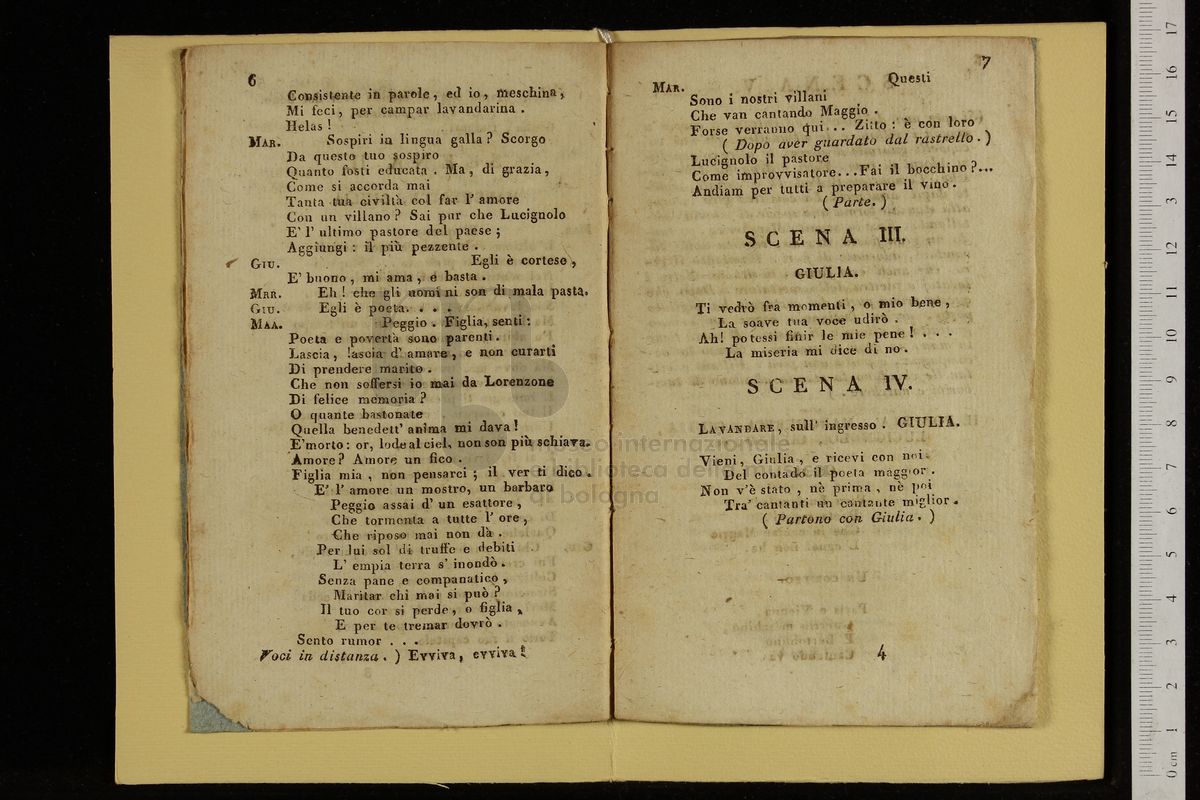 6
Consistente in parole, ed io, meschina,
Mi feci, per campar lavandarina.
Helas!
MAR. Sospiri in lingua galla? Scorgo
Da questo tuo sospiro
Quanto fosti educata. Ma, di grazia,
Come si accorda mai
Tanta tua civiltà col far l' amore
Con un villano? Sai pur che Lucignolo
E' l' ultimo pastore del paese;
Aggiungi: il più pezzente.
GIU. Egli è cortese,
E' buono, mi ama, e basta.
MRR. Eh! che gli uomini son di mala pasta.
GIU. Egli è poeta. . . .
MAA. Peggio. Figlia, senti:
Poeta e povertà sono parenti.
Lascia, lascia d' amare, e non curarti
Di prendere marito.
Che non soffersi io mai da Lorenzone
Di felice memoria?
O quante bastonate
Quella benedett' anima mi dava!
E' morto: or, lode al ciel, non son più schiava.
Amore? Amore un fico.
Figlia mia, non pensarci; il ver ti dico.
E' l' amore un mostro, un barbaro
Peggio assai d' un esattore,
Che tormenta a tutte l' ore,
Che riposo mai non dà.
Per lui sol di truffe e debiti
L' empia terra s' inondò.
Senza pane e companatico,
Maritar chi mai si può?
Il tuo cor si perde, o figlia,
E per te tremar dovrò.
Sento rumor . . .
Voci in distanza. ) Evviva, evviva!
7
MAR. Questi
Sono i nostri villani
Che van cantando Maggio.
Forse verranno qui... Zitto: è con loro
( Dopo aver guardato dal rastrello. )
Lucignolo il pastore
Come improvvisatore...Fai il bocchino?...
Andiam per tutti a preparare il vino.
( Parte. )
SCENA III.
GIULIA.
Ti vedrò fra momenti, o mio bene,
La soave tua voce udirò.
Ah! potessi finir le mie pene! . . .
La miseria mi dice di no.
SCENA IV.
LAVANDARE, sull' ingresso. GIULIA.
Vieni, Giulia, e ricevi con noi
Del contado il poeta maggior.
Non v'è stato, nè prima, nè poi
Tra' cantanti un cantante miglior.
( Partono con Giulia. )
4
museo internazionale
e biblioteca della musica
di bologna
0 cm 1 2 3 4 5 6 7 8 9 10 11 12 13 14 15 16 17